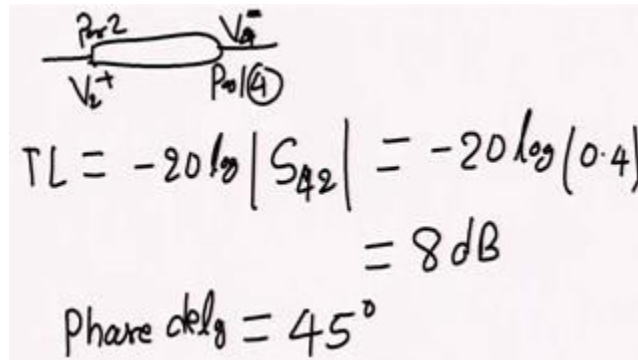 Por 2 V4-
V2+ Port 4
TL = -20 log |S42| = -20 log (0.4)
= 8 dB
Phase dely = 45°